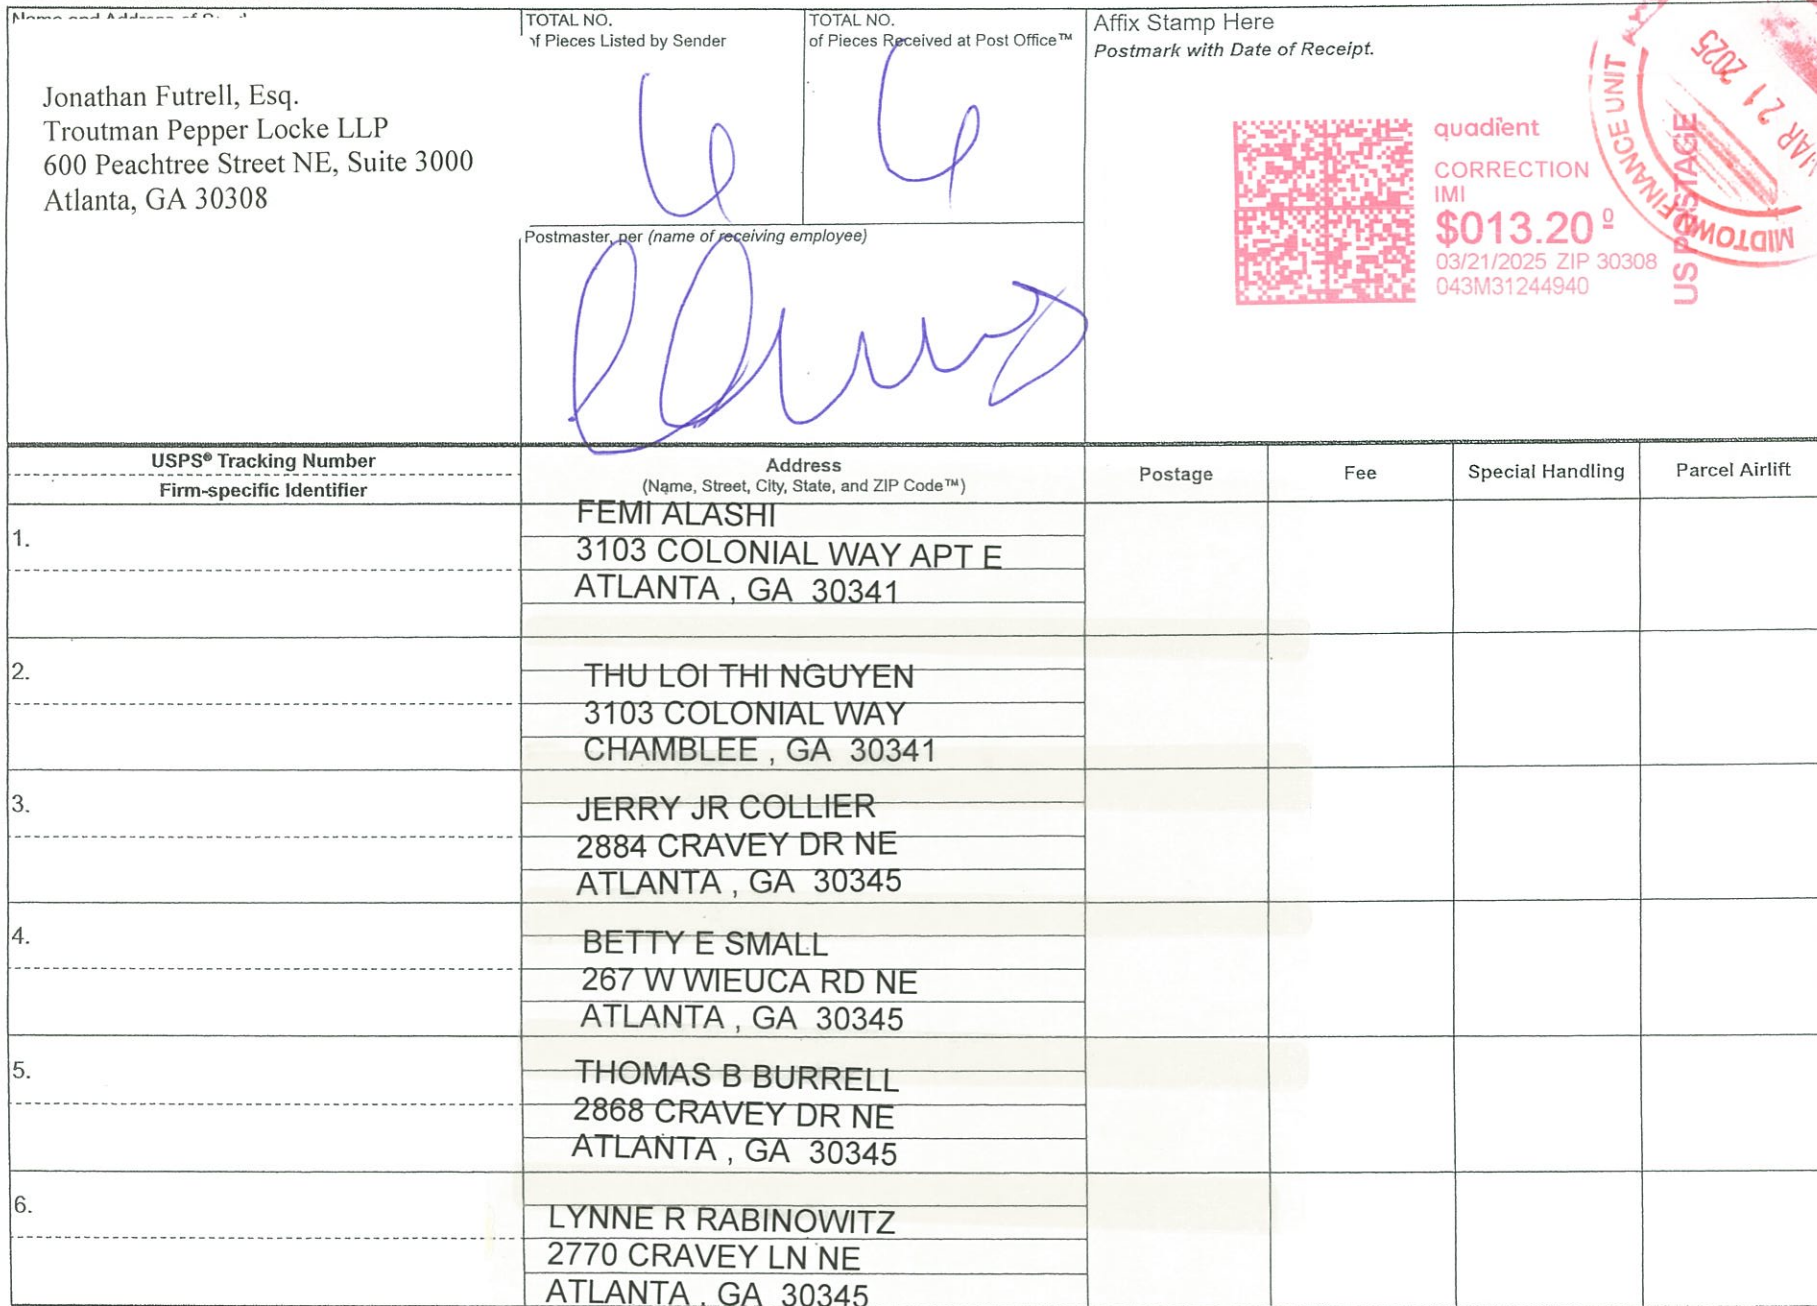 Name and Address of
Jonathan Futrell, Esq.
Troutman Pepper Locke LLP
600 Peachtree Street NE, Suite 3000
Atlanta, GA 30308
TOTAL NO.
of Pieces Listed by Sender
6
TOTAL NO.
of Pieces Received at Post Office™
6
Postmaster, per (name of receiving employee)
Affix Stamp Here
Postmark with Date of Receipt.
quadient
CORRECTION
IMI
$013.20 0
03/21/2025 ZIP 30308
043M31244940
US POSTAGE
MIDTOWN FINANCE UNIT
MAR 21 2025
USPS® Tracking Number
Firm-specific Identifier
Address
(Name, Street, City, State, and ZIP Code™)
Postage
Fee
Special Handling
Parcel Airlift
1.
FEMI ALASHI
3103 COLONIAL WAY APT E
ATLANTA , GA 30341
2.
THU LOI THI NGUYEN
3103 COLONIAL WAY
CHAMBLEE , GA 30341
3.
JERRY JR COLLIER
2884 CRAVEY DR NE
ATLANTA , GA 30345
4.
BETTY E SMALL
267 W WIEUCA RD NE
ATLANTA , GA 30345
5.
THOMAS B BURRELL
2868 CRAVEY DR NE
ATLANTA , GA 30345
6.
LYNNE R RABINOWITZ
2770 CRAVEY LN NE
ATLANTA , GA 30345